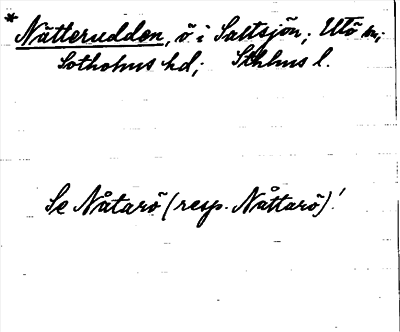 * Nätterudden, ö i Saltsjön; Utö sn;
Sotholms hd; Sthlms l.
Se Nåtarö (resp. Nåttarö)!